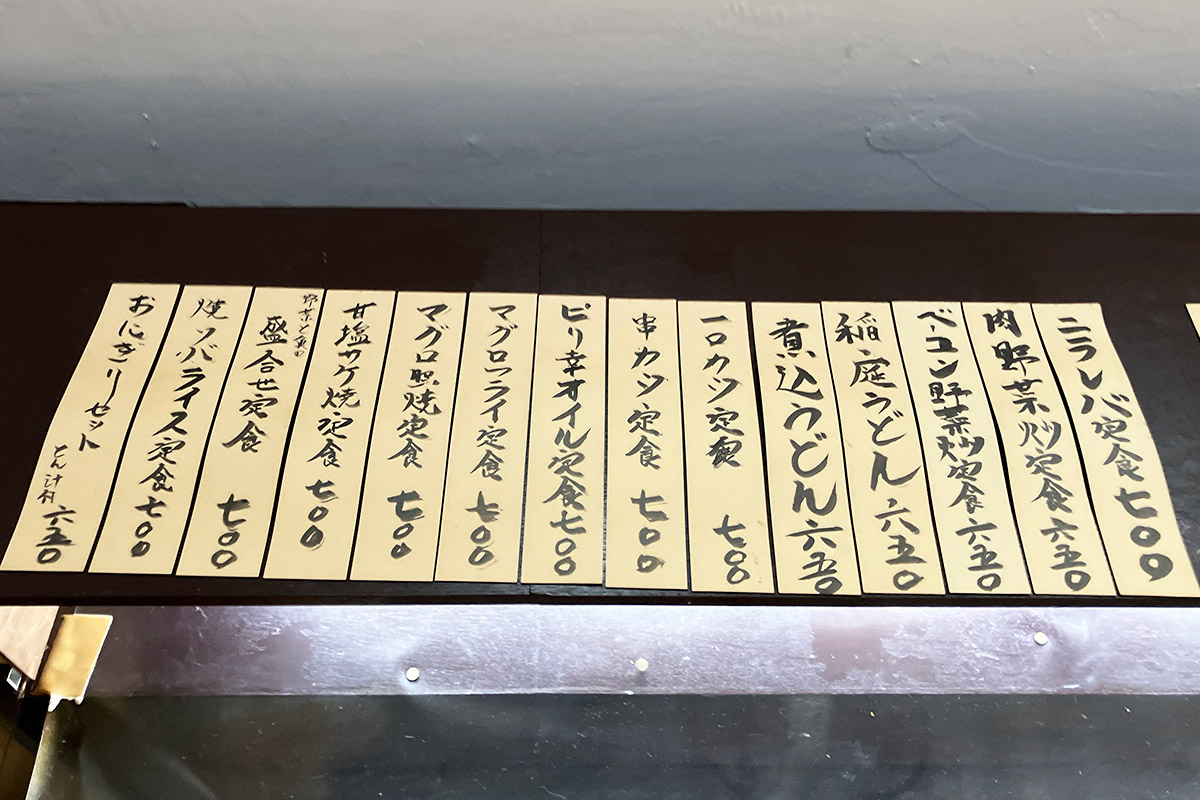 ニラレバ定食七〇〇
肉野菜炒定食六五〇
ベーコン野菜炒定食六五〇
稲庭うどん六五〇
煮込うどん六五〇
一口カツ定食七〇〇
串カツ定食七〇〇
ピリ辛オイル定食七〇〇
マグロフライ定食七〇〇
マグロ照焼定食七〇〇
甘塩サケ焼定食七〇〇
野菜と
盛合せ定食七〇〇
焼ソバライス定食七〇〇
おにぎりセット
とん汁付六五〇